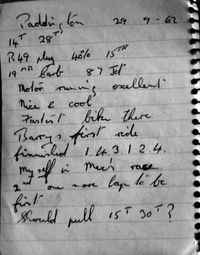 Paddington 29-9-62
14T 28T
R49 Mag 40% 15TH
19 MR Carb 87 Jet
Motor running excellent
Nice & cool
Fastest bike there
Barrys first ride
finnished 1.4.3.1.2.4.
Myself in Mec's race
2nd one more lap to be
first
Should pull 15T 30T?